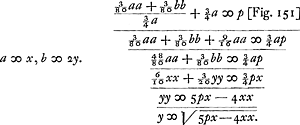 \frac{\frac{3}{80}aa + \frac{3}{80}bb}{\frac{3}{4}a} + \frac{3}{4}a ∞ p [Fig. 151]
\frac{3}{80}aa + \frac{3}{80}bb + \frac{9}{16}aa ∞ \frac{3}{4}ap
a ∞ x, b ∞ 2y. \frac{48}{80}aa + \frac{3}{80}bb ∞ \frac{3}{4}ap
\frac{6}{10}xx + \frac{3}{20}yy ∞ \frac{3}{4}px
yy ∞ 5px − 4xx
y ∞ √5px − 4xx.